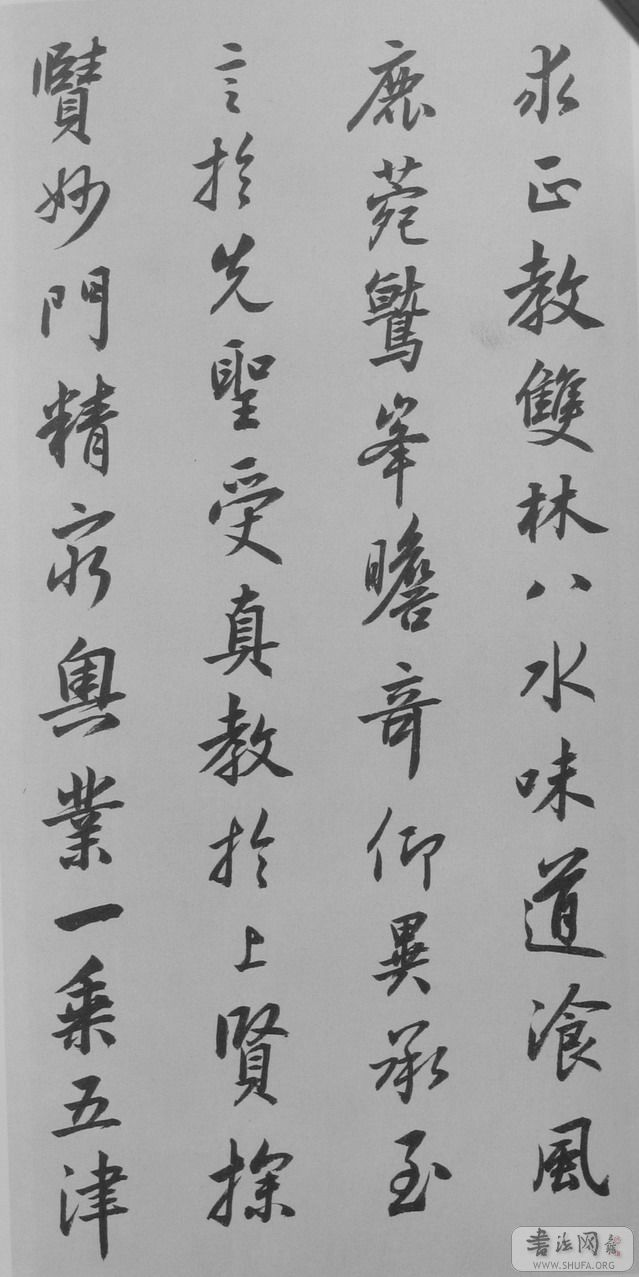 求正教雙林八水味道湌風
鹿菀鷲峯瞻奇仰異承至
言於先聖受真教於上賢探
賾妙門精窮奧業一乘五津
書法网
WWW.SHUFA.ORG